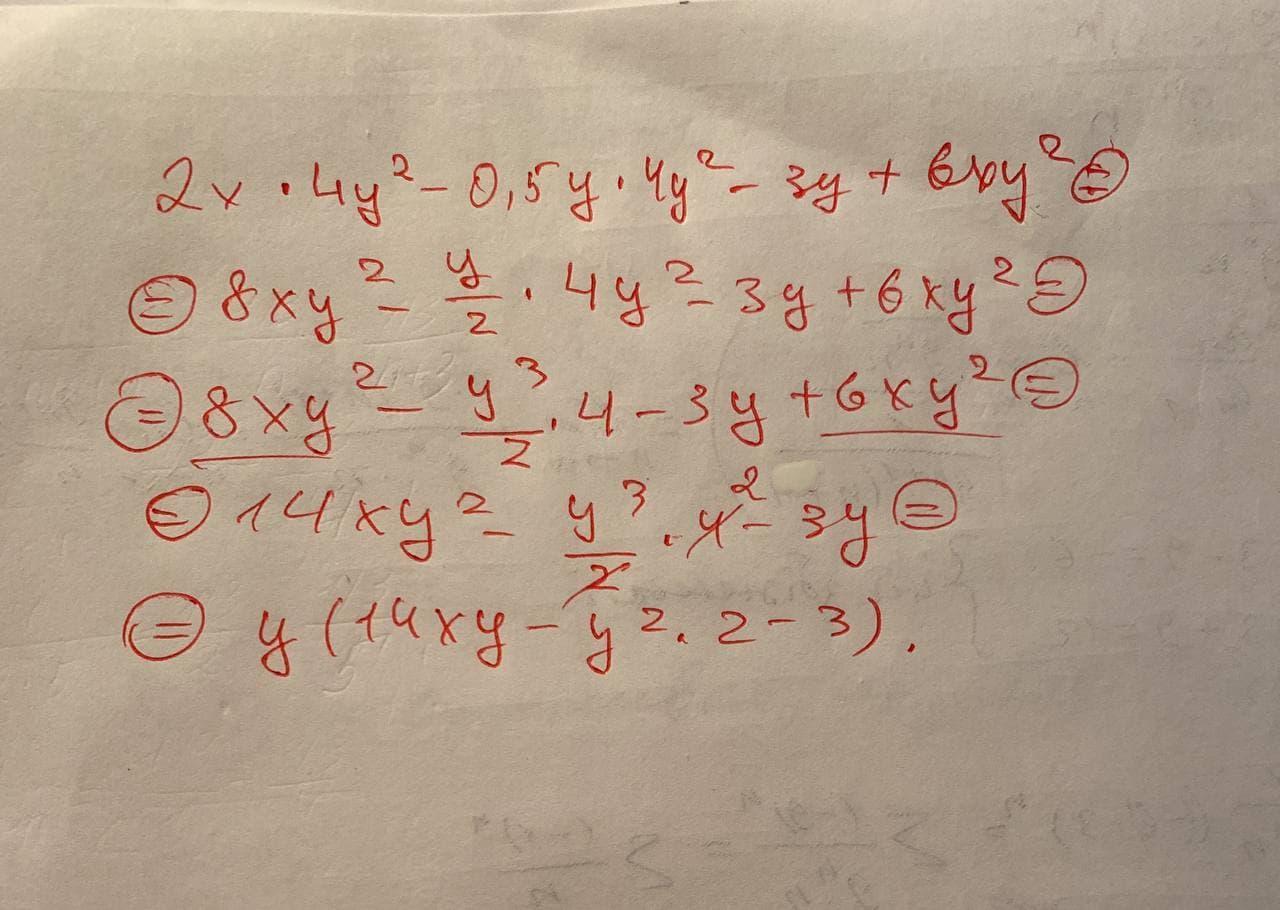 2x · 4y² - 0,5y · 4y² - 3y + 6xy² =
= 8xy² - y/2 · 4y² - 3y + 6xy² =
= 8xy² - y³/2 · 4 - 3y + 6xy² =
= 14xy² - y³/2 · 4² - 3y =
= y(14xy - y² · 2 - 3).